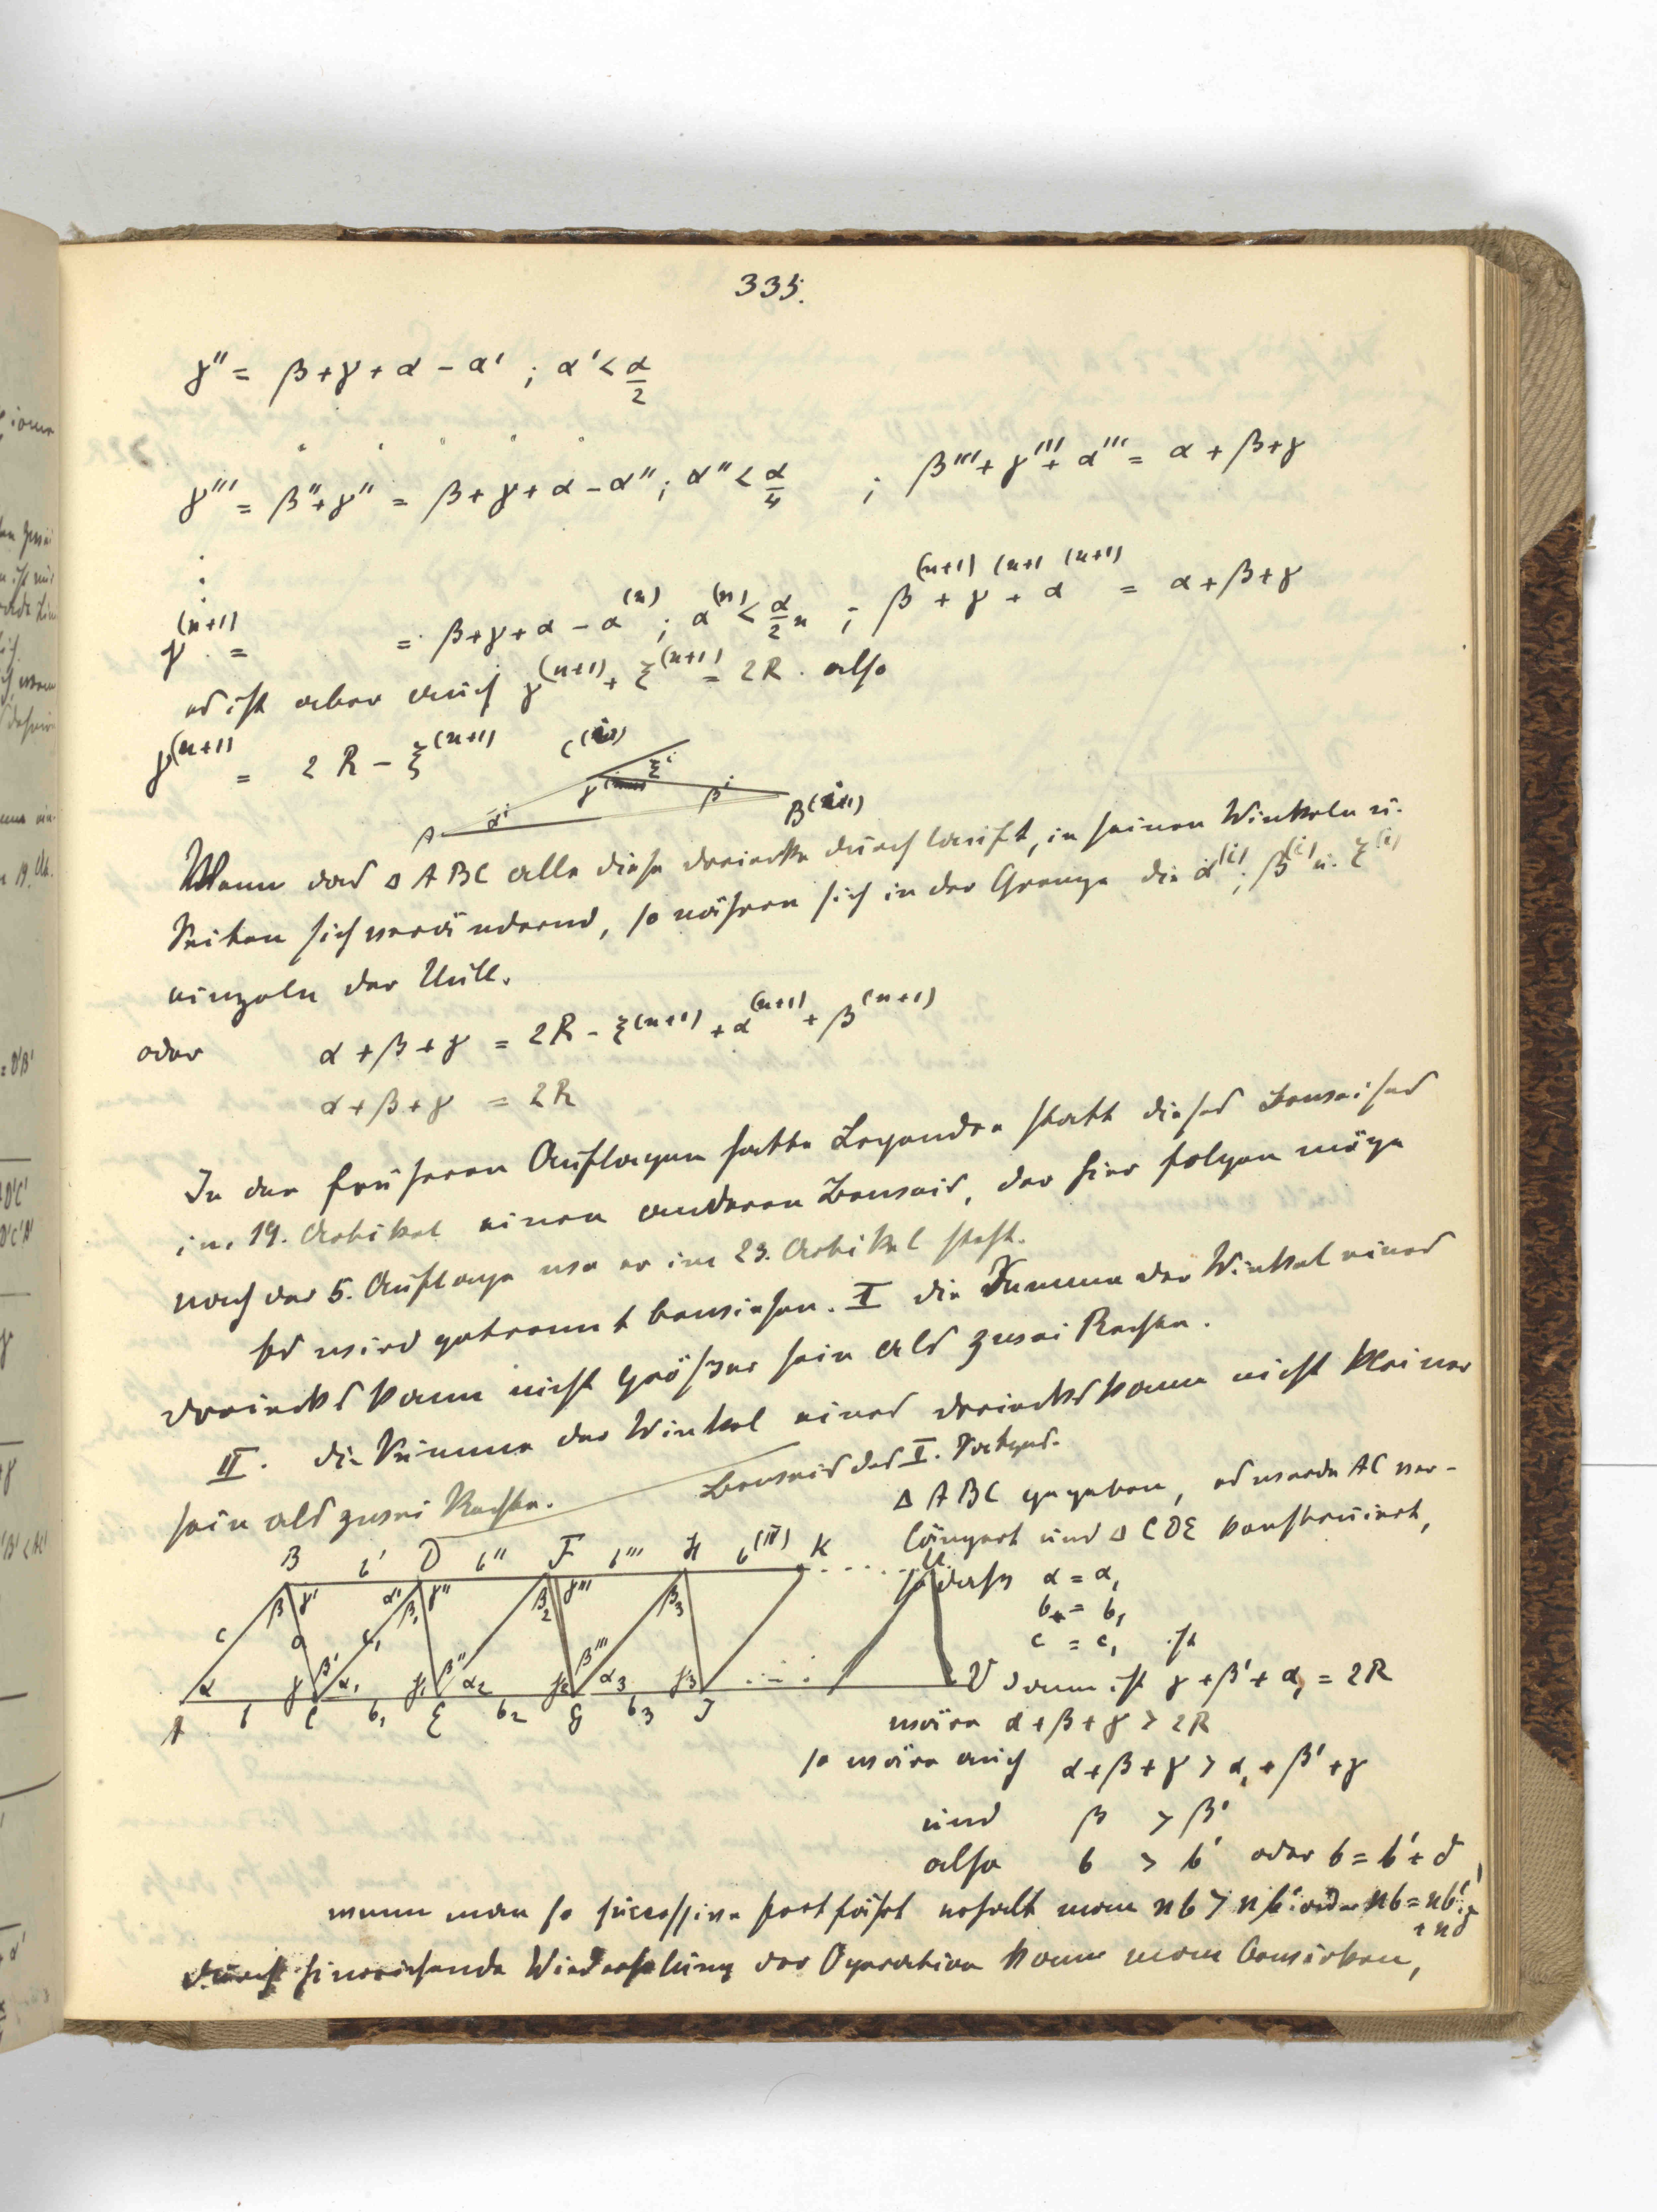 335.
γ'' = β + γ + α - α' ; α' < α/2
γ''' = β'' + γ'' = β + γ + α - α'' ; α'' < α/4 ; β''' + γ''' + α''' = α + β + γ
γ^(n+1) = = β + γ + α - α^(n) ; α^(n) < α/2^n ; β^(n+1) + γ^(n+1) + α^(n+1) = α + β + γ
es ist aber auch γ^(n+1) + ξ^(n+1) = 2R. also
γ^(n+1) = 2R - ξ^(n+1)
C^(i) ξ^i γ^(i) β^i α^i A B^(i)
Wenn das Δ ABC alle diese dreiecke durchläuft, in seinen Winkeln u.
Seiten sich verändernd, so nähern sich in der Grenze die α^(i), β^(i) u. ξ^(i)
einzeln der Null.
oder α + β + γ = 2R - ξ^(n+1) + α^(n+1) + β^(n+1)
α + β + γ = 2R
In den früheren Auflagen hatte Legendre statt dieses Beweises
im 19. Artikel einen anderen Beweis, der hier folgen möge
nach der 5. Auflage wo er im 23. Artikel steht.
Es wird getrennt bewiesen. I die Summe der Winkel eines
dreiecks kann nicht größer sein als zwei Rechte.
II. die Summe der Winkel eines dreiecks kann nicht kleiner
sein als zwei Rechte.
Beweis des I. Satzes.
Δ ABC gegeben, es werde AC ver-
längert und Δ CDE konstruiert,
so dass α = α₁
b = b₁
c = c₁ ist
B b' D b'' F b''' H b^(IV) K . . . . U
β γ' α' β₁ γ'' β₂ γ''' β₃
c a c₁
α γ β' α₁ γ₁ β'' α₂ γ₂ β''' α₃ γ₃ . . . V
A b C b₁ E b₂ G b₃ J
dann ist γ + β' + α₁ = 2R
wäre α + β + γ > 2R
so wäre auch α + β + γ > α₁ + β' + γ
und β > β'
also b > b' oder b = b' + δ,
wenn man so successive fortfährt erhält man nb > nb' oder nb = nb' + nδ
durch hinreichende Wiederholung der Operation kann man bewirken,